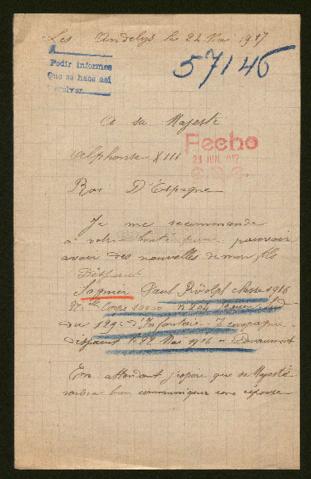 Les Andelys le 22 Mai 1917
Pedir informes
Que se hace así
57146
A sa Majesté
Fecho
23 JUN. 1917
Alphonse XIII
Roi D'Espagne
Je me recommande
a votre bonté pour pouvoir
avoir des nouvelles de mon fils
Disparut
Paul Rodolph classe 1916
du 129e d'Infanterie 7e compagnie
disparut le 22 Mai 1916 a Douaumont
En attendant j'espere que sa Majesté
voudra bien communiquer une réponse